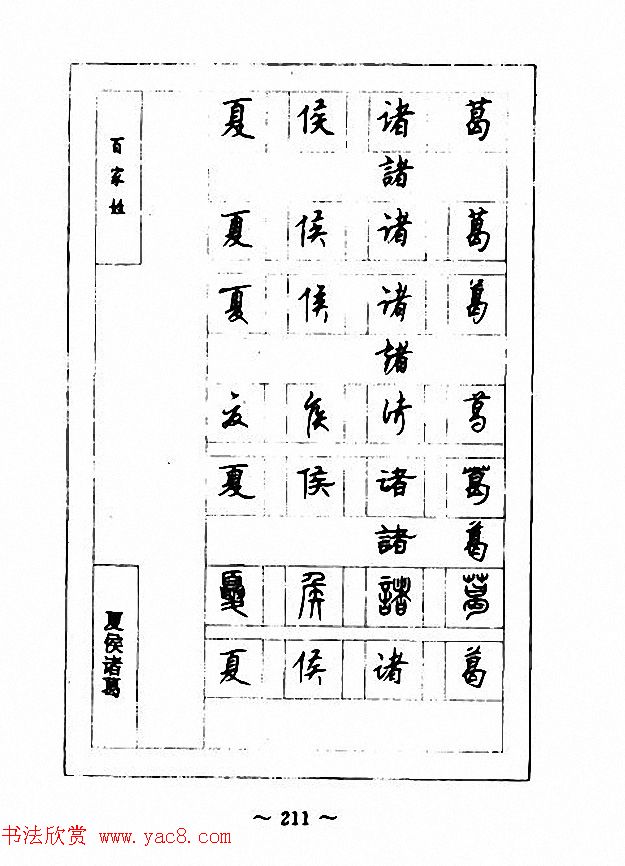 百家姓
夏 侯 诸 葛
諸
夏 侯 诸 葛
夏 侯 诸 葛
諸
夏 侯 诸 葛
夏 侯 诸 葛
諸 葛
夏 侯 諸 葛
夏 侯 诸 葛
夏侯诸葛
~ 211 ~
书法欣赏 www.yac8.com